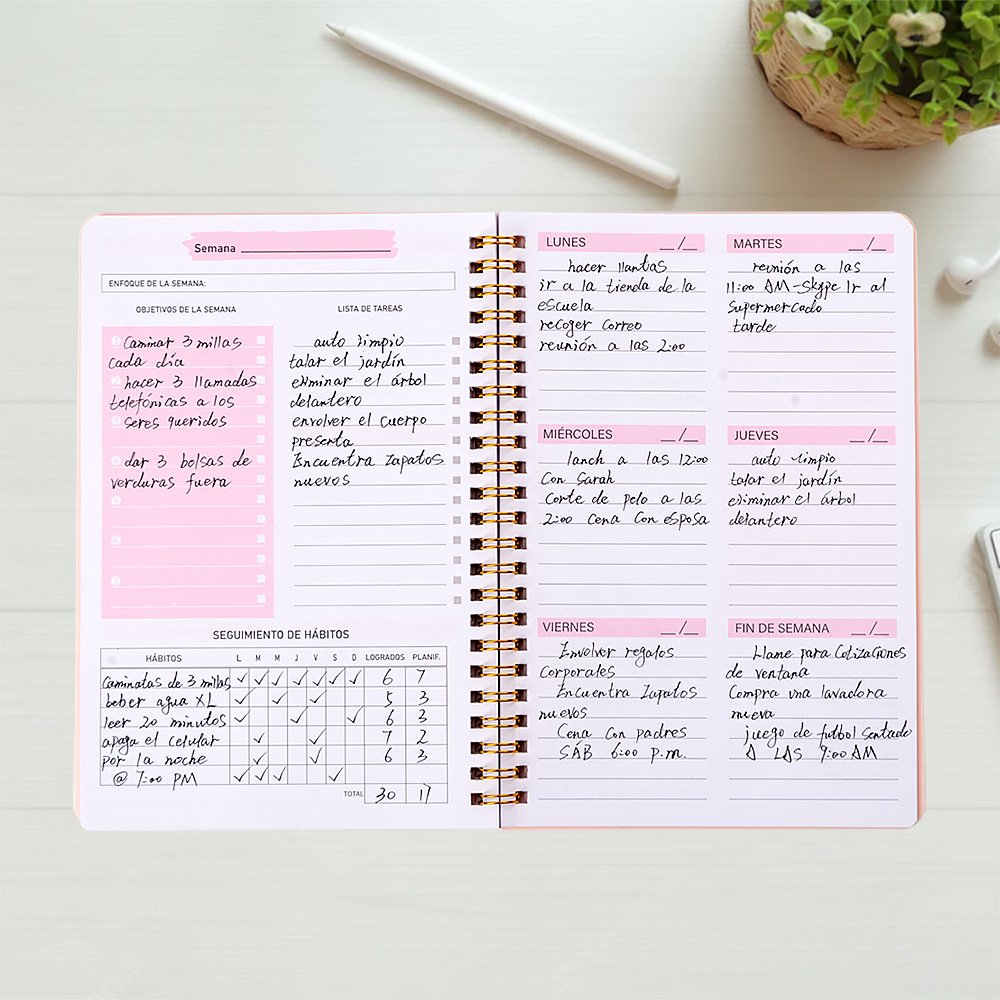 Semana
ENFOQUE DE LA SEMANA:
OBJETIVOS DE LA SEMANA
1 Caminar 3 millas
cada día
2 hacer 3 llamadas
telefónicas a los
3 seres queridos
4 dar 3 bolsas de
verduras fuera
5
6
7
LISTA DE TAREAS
auto limpio
talar el jardín
eliminar el árbol
delantero
envolver el cuerpo
presenta
Encuentra zapatos
nuevos
SEGUIMIENTO DE HÁBITOS
HÁBITOS L M M J V S D LOGRADOS PLANIF.
caminatas de 3 millas ✓ ✓ ✓ ✓ ✓ ✓ ✓ 6 7
beber agua XL ✓ ✓ ✓ 5 3
leer 20 minutos ✓ ✓ ✓ 6 3
apaga el celular ✓ ✓ 7 2
por la noche ✓ ✓ 6 3
@ 7:00 PM ✓ ✓ ✓ ✓
TOTAL 30 17
LUNES __/__
hacer llantas
ir a la tienda de la
escuela
recoger correo
reunión a las 2:00
MARTES __/__
reunión a las
11:00 AM-Skype Ir al
Supermercado
tarde
MIÉRCOLES __/__
lanch a las 12:00
Con Sarah
Corte de pelo a las
2:00 Cena Con esposa
JUEVES __/__
auto limpio
talar el jardín
eliminar el árbol
delantero
VIERNES __/__
Envolver regalos
Corporales
Encuentra Zapatos
nuevos
Cena con padres
SÁB 6:00 p.m.
FIN DE SEMANA __/__
Llame para Cotizaciones
de ventana
Compra una lavadora
nueva
juego de futbol Sentado
A LAS 9:00 AM